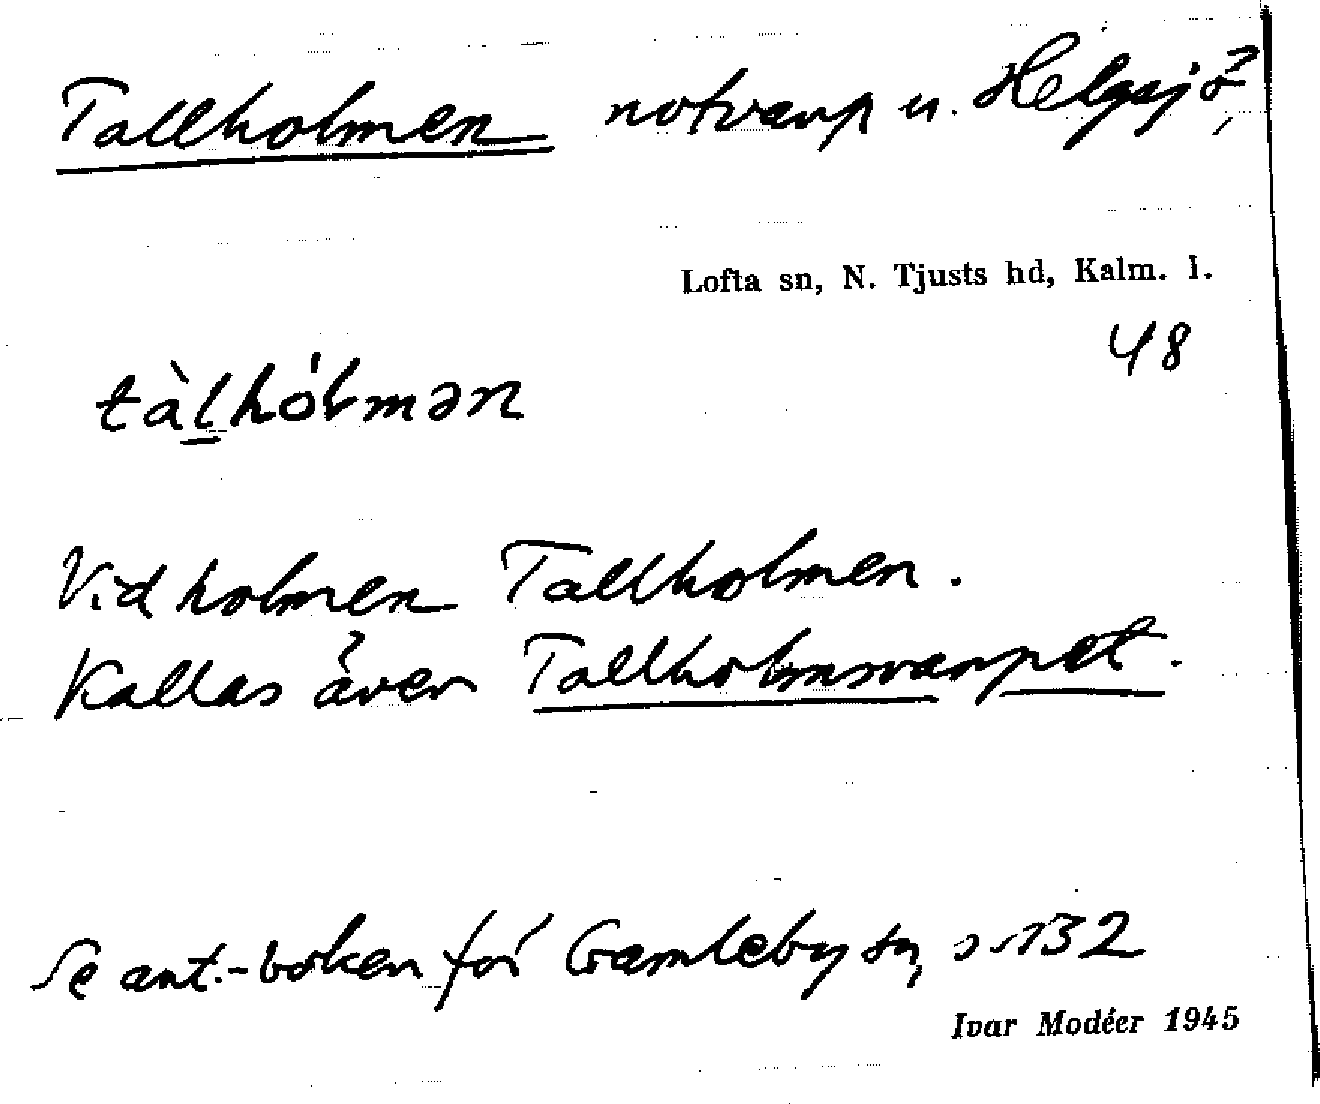 Tallholmen notvarp u. Helgsjö?,
Lofta sn, N. Tjusts hd, Kalm. l.
48
tàl̲hólmən
Vid holmen Tallholmen.
Kallas även Tallholmsvarpet.
Se ant.-boken för Gamleby sn, s. 132
Ivar Modéer 1945